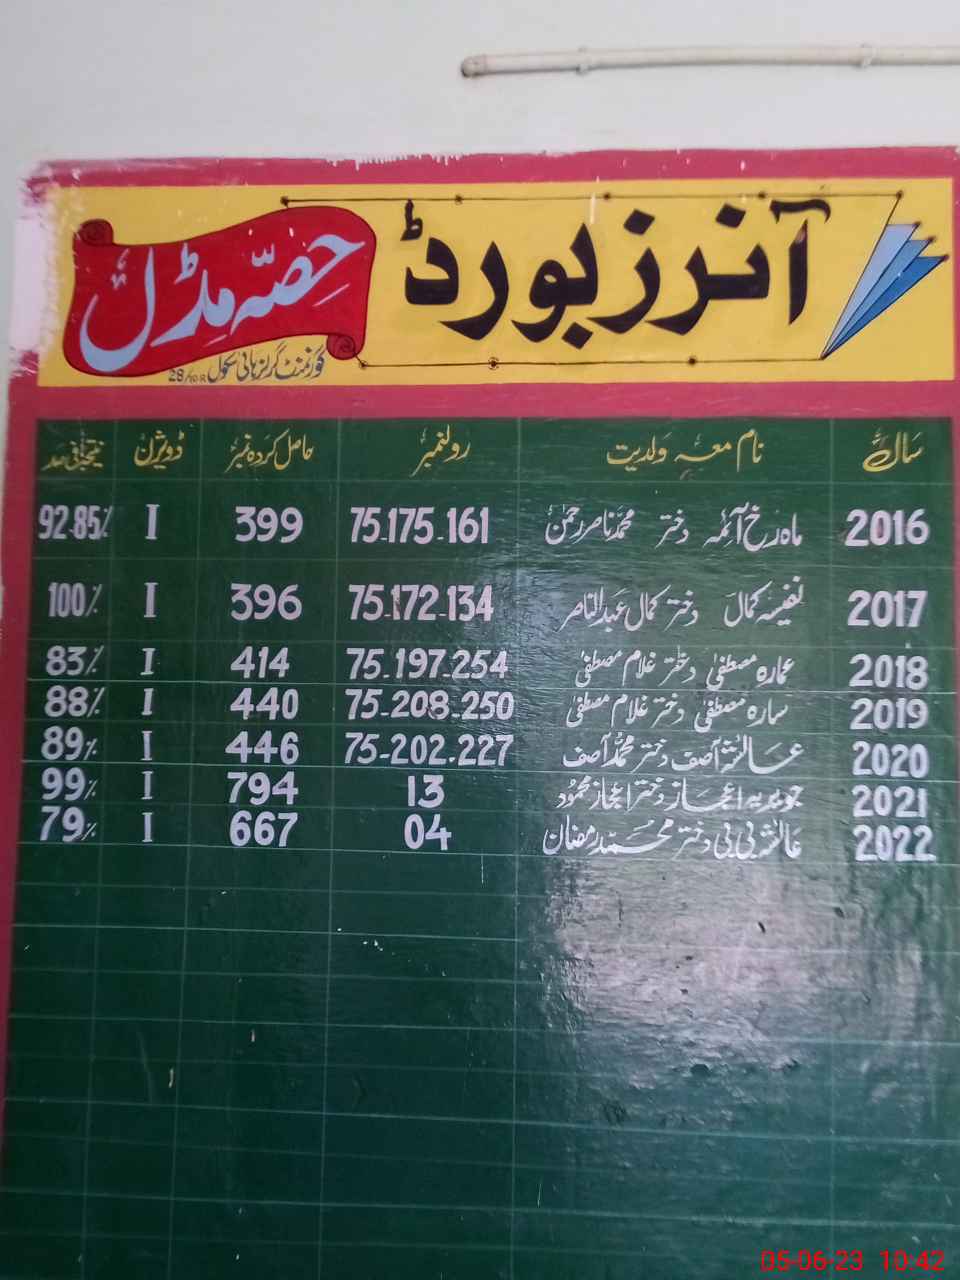 آنرز بورڈ
حصّہ مڈل
گورنمنٹ گرلز ہائی سکول 28/10R
سال نام معہ ولدیت رولنمبر حاصل کردہ نمبر ڈویژن نتیجہ فی صد
2016 ماہ رخ آئمہ دختر محمد ناصر رحمٰن 75-175-161 399 I 92.85%
2017 نفیسہ کمال دختر کمال عبدالناصر 75-172-134 396 I 100%
2018 عمارہ مصطفیٰ دختر غلام مصطفیٰ 75-197-254 414 I 83%
2019 سارہ مصطفیٰ دختر غلام مصطفیٰ 75-208-250 440 I 88%
2020 عائشہ آصف دختر محمد آصف 75-202-227 446 I 89%
2021 جویریہ اعجاز دختر اعجاز محمود 13 794 I 99%
2022 عائشہ بی بی دختر محمد رمضان 04 667 I 79%
05-06-23 10:42